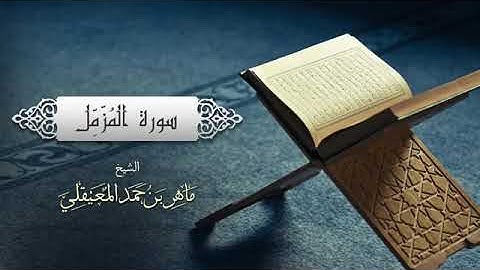 سورة المُزَّمِّل
الشيخ
مَاهِر بن حَمَد المُعَيْقِلِيّ